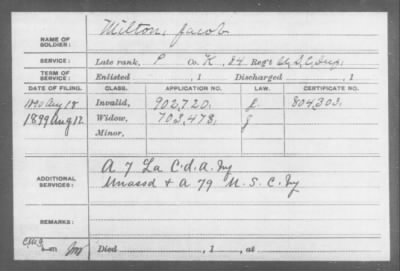 NAME OF SOLDIER: Milton, Jacob
SERVICE: Late rank, P Co. K, 84 Reg't U.S.C. Inf.
TERM OF SERVICE: Enlisted , 1 Discharged , 1
DATE OF FILING. CLASS. APPLICATION NO. LAW. CERTIFICATE NO.
1890 Aug 18 Invalid, 902,720. 804,303.
1899 Aug 12 Widow, 703,478.
Minor,
ADDITIONAL SERVICES: A 7 La C.d.A. Inf
Unassd + A 79 U.S.C. Inf
REMARKS:
Died , 1 , at